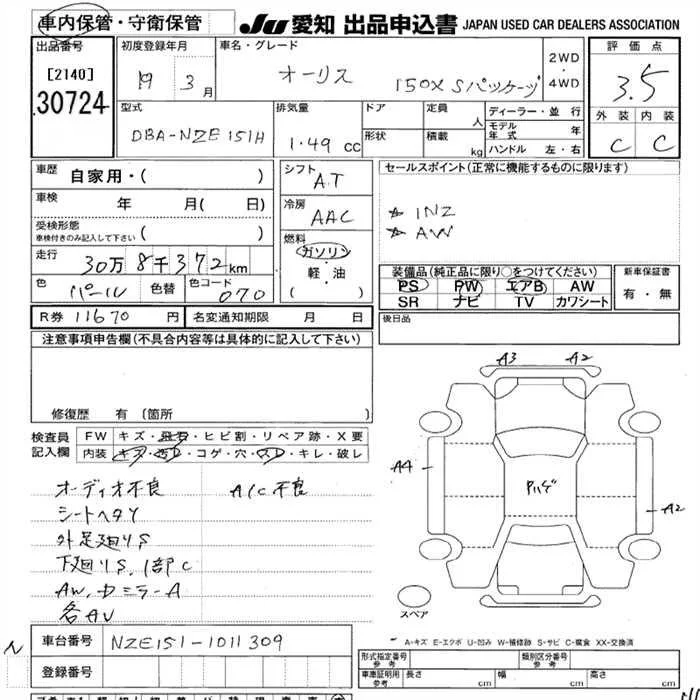 車内保管・守衛保管 JU 愛知 出品申込書 JAPAN USED CAR DEALERS ASSOCIATION
出品番号 初度登録年月 車名・グレード 2WD・4WD 評価点
[2140] 19 3月 オーリス 150X Sパッケージ 3.5
30724
型式 排気量 ドア 定員 人 ディーラー・並行 外装 内装
DBA-NZE151H 1.49 cc 形状 積載 kg モデル年式 年 C C
ハンドル 左・右
車歴 自家用・( ) シフト AT セールスポイント(正常に機能するものに限ります)
車検 年 月( 日) 冷房 AAC ☆ INZ
受検形態 ☆ AW
車検付きのみ記入して下さい ( )
燃料 ガソリン・軽・油 ( )
走行 30万8千372km
装備品(純正品に限り○をつけてください) 新車保証書
色 パール 色替 色コード 070 PS PW エアB AW 有・無
SR ナビ TV カワシート
R券 11670 円 名変通知期限 月 日 後日品
注意事項申告欄(不具合内容等は具体的に記入して下さい)
修復歴 有 〔箇所
A3 A2
検査員記入欄 FW キズ・飛石・ヒビ割・リペア跡・X要
内装 キズ・汚レ・コゲ・穴・スレ・キレ・破レ
A4 Pハゲ A2
オーディオ不良 A/C不良
シートヘタリ
外足廻りS
下廻りS、1部C
AW、ドミラーA
各AU
スペア
A-キズ E-エクボ U-凹み W-補修跡 S-サビ C-腐食 XX-交換済
車台番号 NZE151-1011309
登録番号
形式指定番号 参考 類別区分番号 参考
車庫証明用 参考 長さ cm 幅 cm 高さ cm